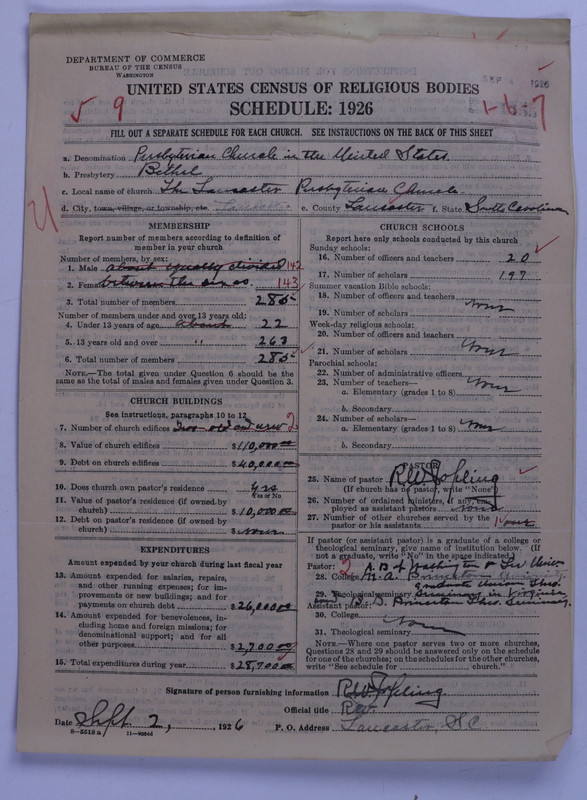 DEPARTMENT OF COMMERCE
BUREAU OF THE CENSUS
WASHINGTON
SEP 1926
UNITED STATES CENSUS OF RELIGIOUS BODIES
SCHEDULE: 1926
9
1-6-7
FILL OUT A SEPARATE SCHEDULE FOR EACH CHURCH. SEE INSTRUCTIONS ON THE BACK OF THIS SHEET
a. Denomination Presbyterian Church in the United States
b. Presbytery Bethel
c. Local name of church The Lancaster Presbyterian Church
d. City, town, village, or township, etc. Lancaster e. County Lancaster f. State South Carolina
MEMBERSHIP
Report number of members according to definition of
member in your church
Number of members, by sex:
1. Male about equally divided 142
2. Female between the sexes 143
3. Total number of members 285
Number of members under and over 13 years old:
4. Under 13 years of age about 22
5. 13 years old and over " 263
6. Total number of members 285
NOTE.—The total given under Question 6 should be
same as the total of males and females given under Question 3.
CHURCH BUILDINGS
See instructions, paragraphs 10 to 12
7. Number of church edifices Two old and new 2
8. Value of church edifices $110,000.00
9. Debt on church edifices $40,000.00
10. Does church own pastor's residence yes
Yes or No
11. Value of pastor's residence (if owned by
church) $10,000.00
12. Debt on pastor's residence (if owned by
church) $ none
EXPENDITURES
Amount expended by your church during last fiscal year
13. Amount expended for salaries, repairs,
and other running expenses; for im-
provements or new buildings; and for
payments on church debt $26,000.00
14. Amount expended for benevolences, in-
cluding home and foreign missions; for
denominational support; and for all
other purposes $2,700.00
15. Total expenditures during year $28,700.00
CHURCH SCHOOLS
Report here only schools conducted by this church
Sunday schools:
16. Number of officers and teachers 20
17. Number of scholars 197
Summer vacation Bible schools:
18. Number of officers and teachers
19. Number of scholars None
Week-day religious schools:
20. Number of officers and teachers
21. Number of scholars None
Parochial schools:
22. Number of administrative officers
23. Number of teachers— None
a. Elementary (grades 1 to 8)
b. Secondary
24. Number of scholars—
a. Elementary (grades 1 to 8) None
b. Secondary
PASTOR
25. Name of pastor R W Jopling
(If church has no pastor, write "None")
26. Number of ordained ministers, if any, em-
ployed as assistant pastors None
27. Number of other churches served by the
pastor or his assistants None
If pastor (or assistant pastor) is a graduate of a college or
theological seminary, give name of institution below. (If
not a graduate, write "No" in the space indicated.)
Pastor: 2 A.B. of Washington & Lee Univer
28. College M.A. Princeton University
graduate Union Theo.
29. Theological seminary Seminary in Virginia
B.D. Princeton Theo. Seminary
Assistant pastor:
30. College None
31. Theological seminary
NOTE.—Where one pastor serves two or more churches,
Questions 28 and 29 should be answered only on the schedule
for one of the churches; on the schedules for the other churches,
write "See schedule for church."
Signature of person furnishing information R W Jopling
Official title Rev.
Date Sept. 2, 1926 P. O. Address Lancaster, SC
8—5518 a